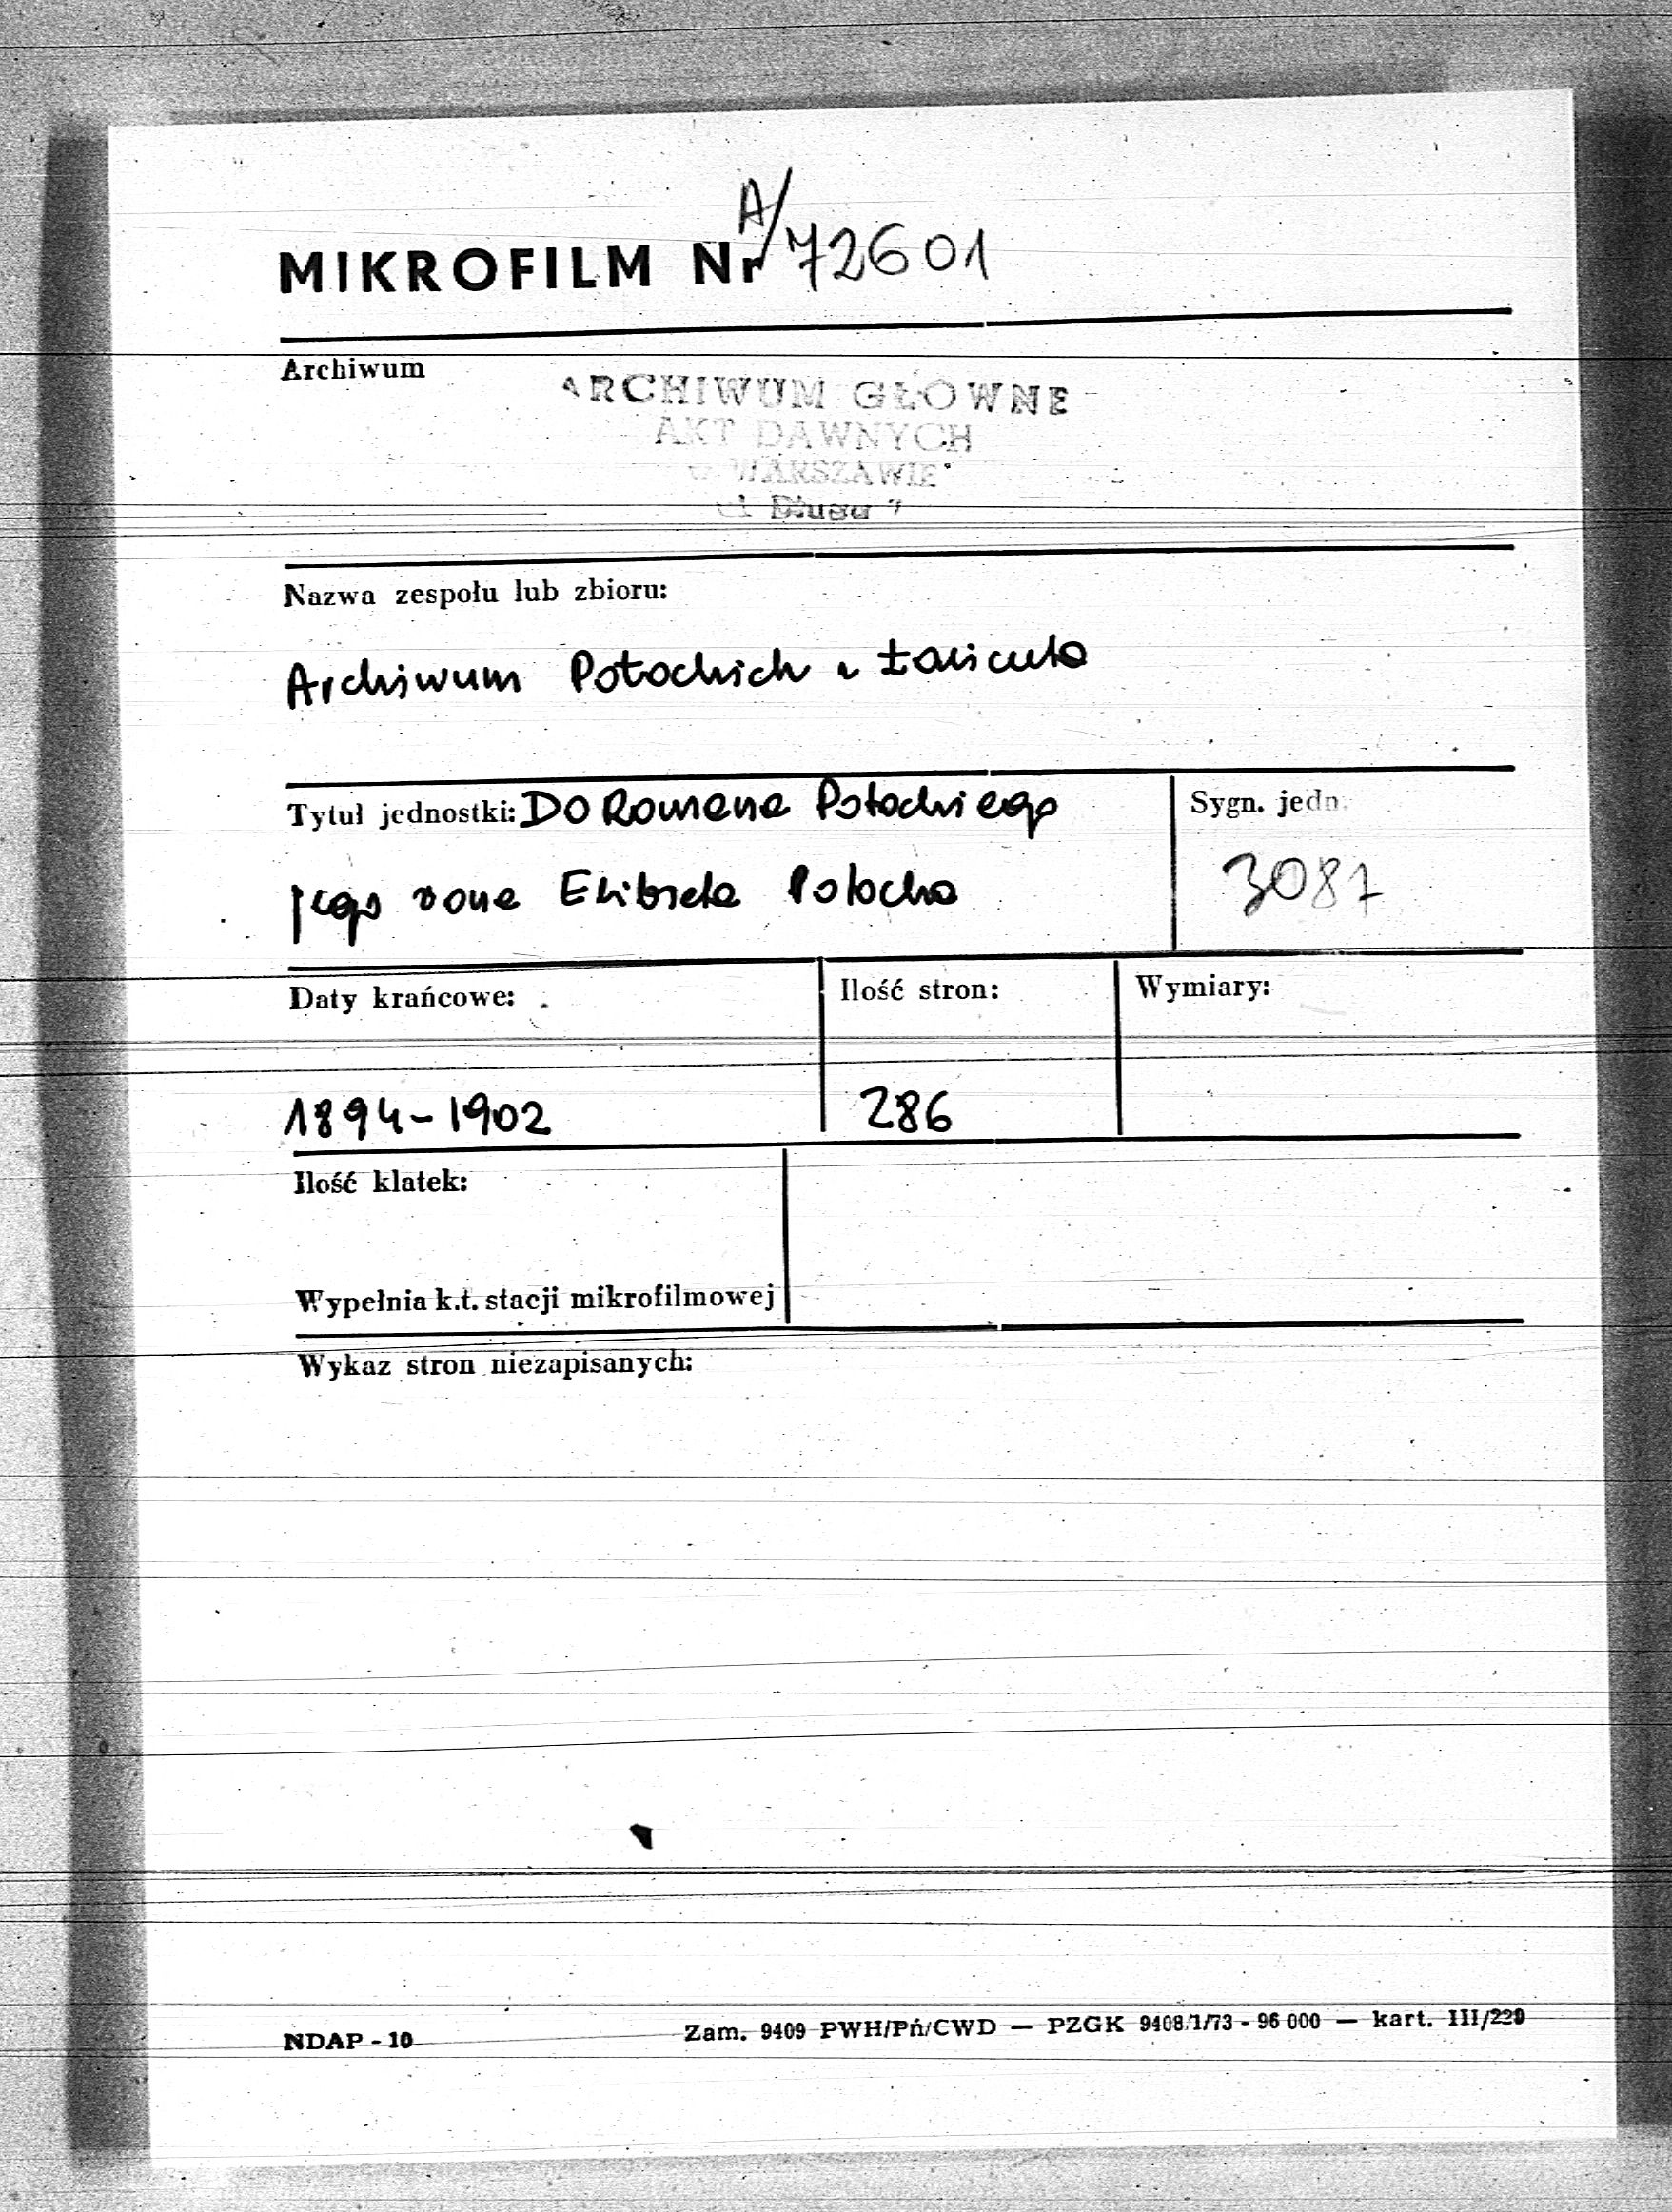 A/
MIKROFILM Nr 72601
Archiwum
ARCHIWUM GŁÓWNE
AKT DAWNYCH
w WARSZAWIE
ul. Długa 7
Nazwa zespołu lub zbioru:
Archiwum Potockich z Łańcuta
Tytuł jednostki: Do Romana Potockiego
Sygn. jedn.
jego żona Elżbieta Potocka
3087
Daty krańcowe:
Ilość stron:
Wymiary:
1894-1902
286
Ilość klatek:
Wypełnia k.t. stacji mikrofilmowej
Wykaz stron niezapisanych:
NDAP - 10
Zam. 9409 PWH/Pń/CWD — PZGK 9408/1/73 - 96 000 — kart. III/220